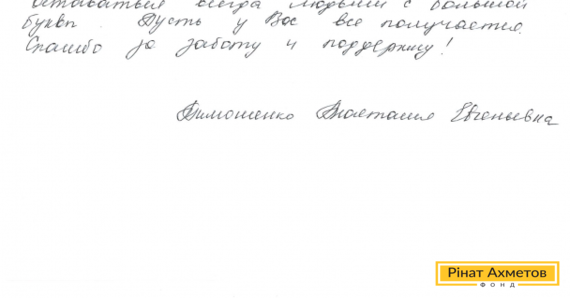 оставаться всегда людьми с большой
буквы. Пусть у Вас все получается.
Спасибо за заботу и поддержку!
Тимошенко Анастасия Евгеньевна
Рінат Ахметов
ФОНД